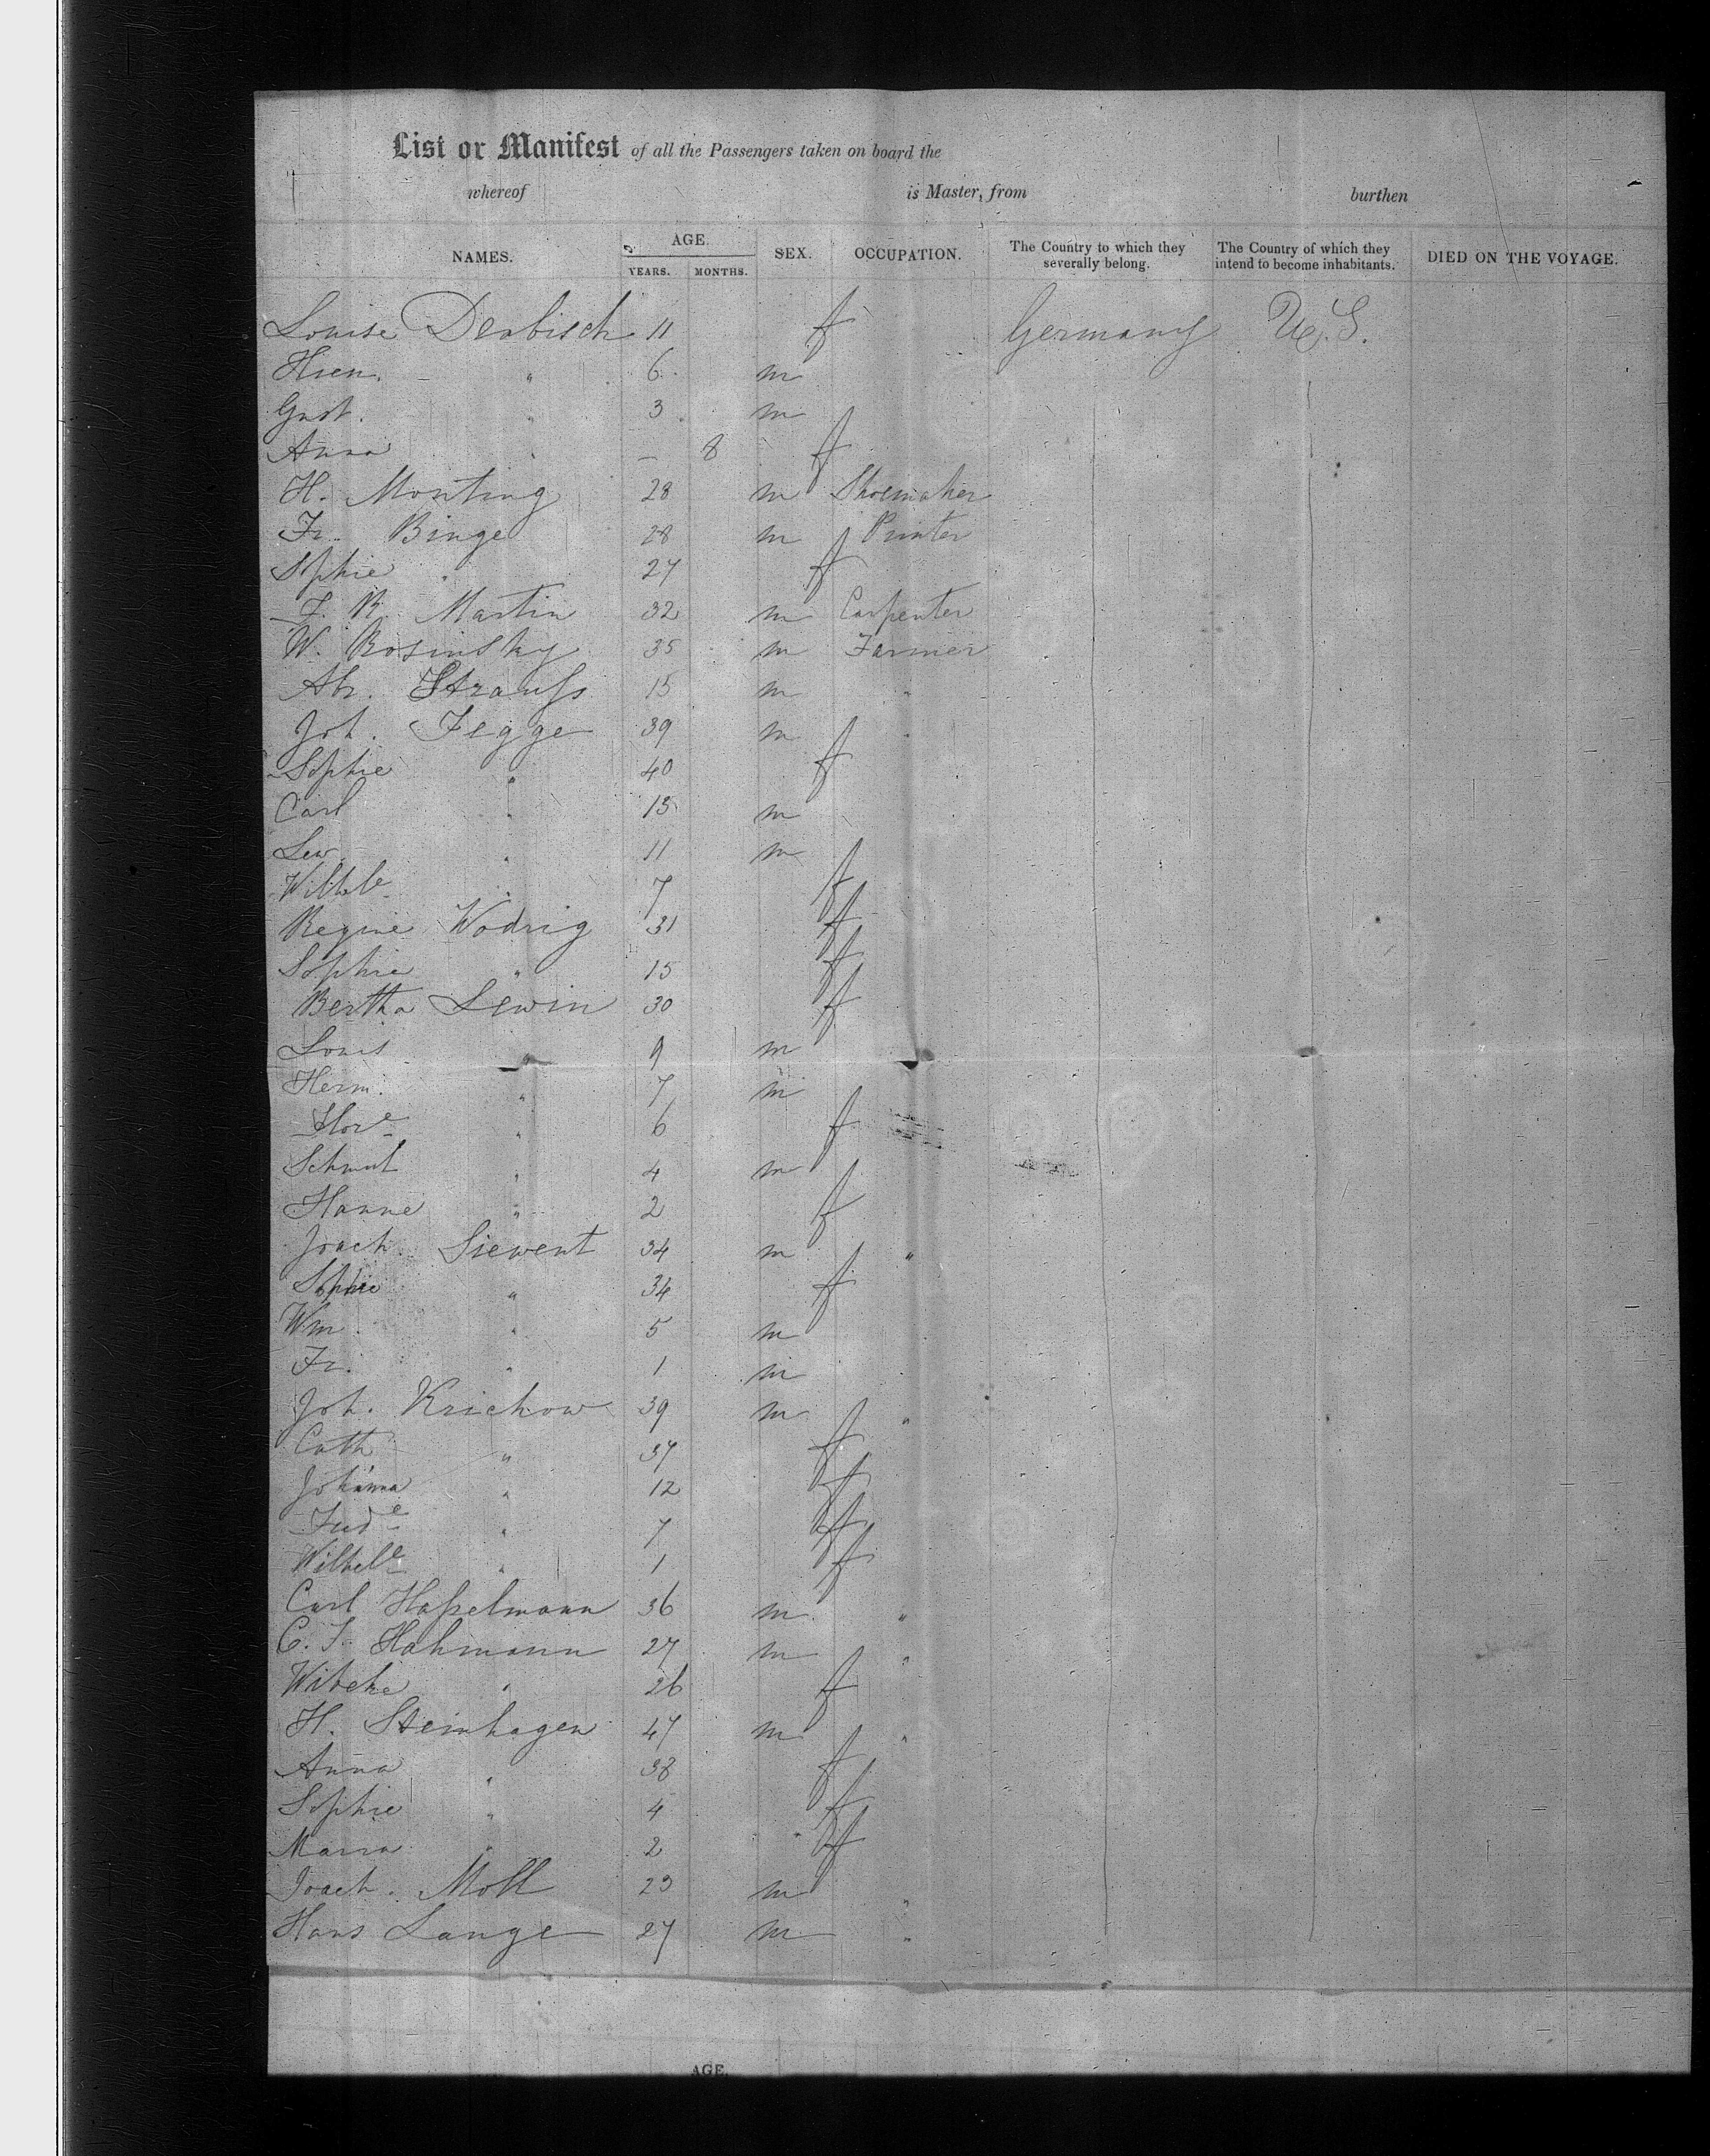 List or Manifest of all the Passengers taken on board the
whereof is Master, from burthen
NAMES. AGE. YEARS. MONTHS. SEX. OCCUPATION. The Country to which they severally belong. The Country of which they intend to become inhabitants. DIED ON THE VOYAGE.
Louise Derbisch 11 f Germany U.S.
Hien. " 6 m
Gust. " 3 m
Anna " — 8 f
H. Monting 28 m Shoemaker
Fr. Binge 28 m Printer
Sophie " 27 f
F. R. Martin 32 m Carpenter
W. Rosinsky 35 m Farmer
Abr. Strauss 15 m "
Joh. Fegge 39 m "
Sophie " 40 f
Carl " 15 m
Lew. " 11 m
Wilhle " 7 f
Regine Wodrig 31 f
Sophie " 15 f
Bertha Lewin 30 f
Louis " 9 m
Herm. " 7 m
Flore " 6 f
Schmul " 4 m
Hanne " 2 f
Joach. Siewent 34 m "
Sophie " 34 f
Wm. " 5 m
Fr. " 1 m
Joh. Krichow 39 m "
Cath " 37 f
Johanna " 12 f
" 7 f
Wilhele " 1 f
Carl Hasselmann 36 m "
C. J. Hahmann 27 m "
Wibeke " 26 f
H. Steinhagen 47 m "
Anna " 38 f
Sophie " 4 f
Maria " 2 f
Joach. Moll 23 m "
Hans Lange 27 m "
AGE.